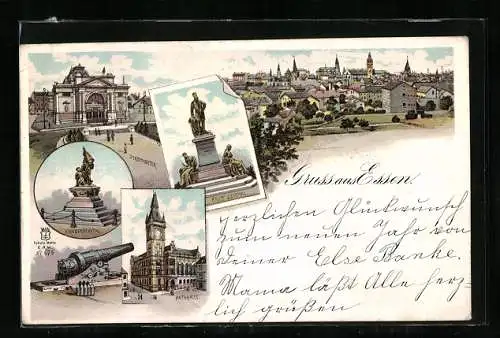 STADTTHEATER
KRIEGERDENKMAL
RATHAUS
Gruss aus Essen.
Herzlichen Glückwunsch
zum neuen Jahr von
Deiner Else Banke.
Mama läßt Alle herz-
lich grüßen